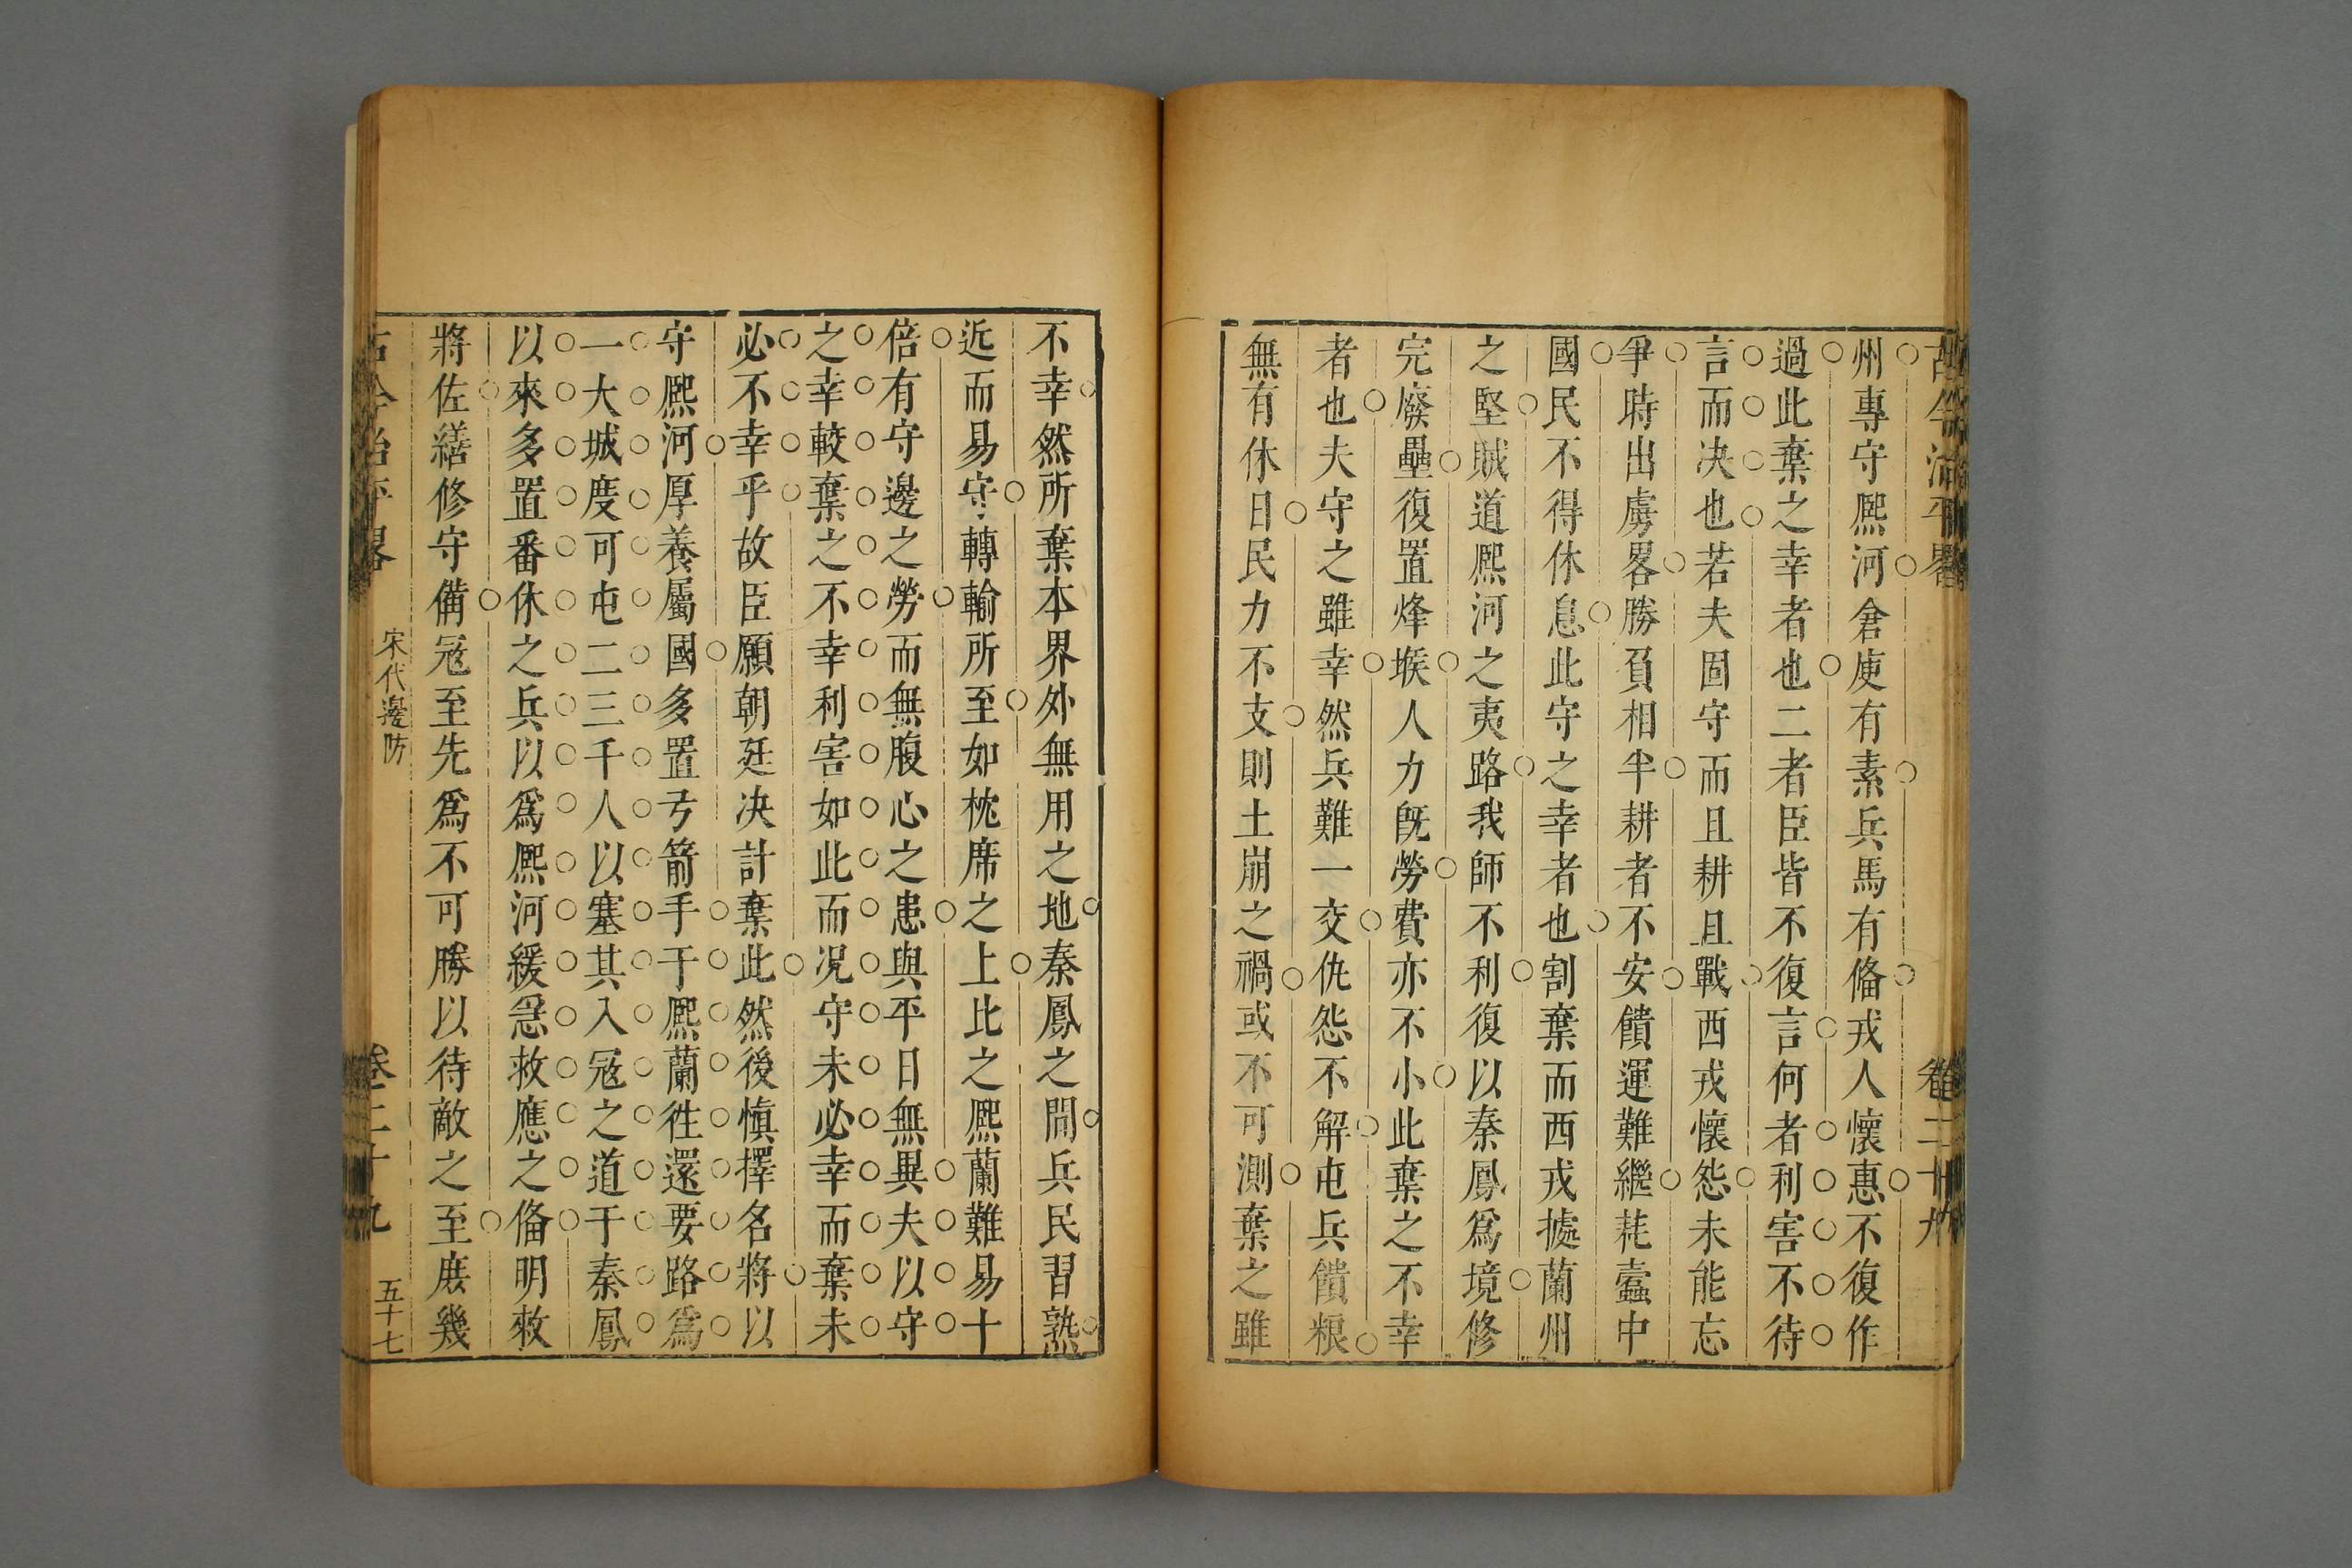 古今治平畧 卷二十九
州專守熈河倉庾有素兵馬有俻戎人懷惠不復作
過此棄之幸者也二者臣皆不復言何者利害不待
言而决也若夫固守而且耕且戰西戎懷怨未能忘
爭時出虜畧勝負相半耕者不安饋運難繼耗蠧中
國民不得休息此守之幸者也割棄而西戎㨿蘭州
之堅賊道熈河之夷路我師不利復以秦鳳爲境修
完廢壘復置烽堠人力旣勞費亦不小此棄之不幸
者也夫守之雖幸然兵難一交仇怨不解屯兵饋粮
無有休日民力不支則土崩之禍或不可測棄之雖
不幸然所棄本界外無用之地秦鳳之間兵民習熟
近而易守轉輸所至如枕席之上比之熈蘭難易十
倍有守邊之勞而無腹心之患與平日無異夫以守
之幸較棄之不幸利害如此而况守未必幸而棄未
必不幸乎故臣願朝廷决計棄此然後慎擇名將以
守熈河厚養屬國多置弓箭手于熈蘭徃還要路爲
一大城度可屯二三千人以塞其入冦之道于秦鳳
以來多置番休之兵以爲熈河緩急救應之俻明敕
將佐繕修守備冦至先爲不可勝以待敵之至庶幾
古今治平畧 宋代邊防 卷二十九 五十七